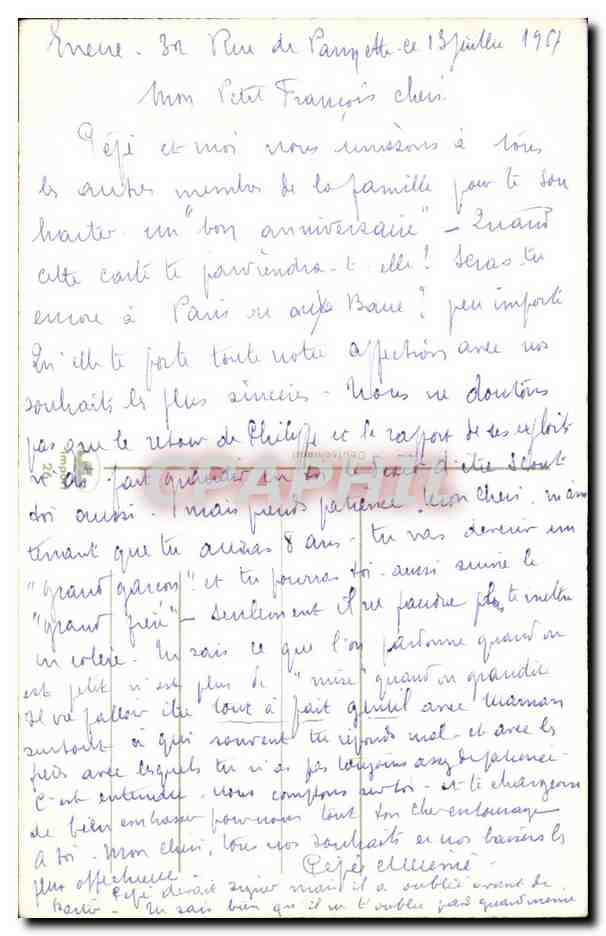 32 Rue de ce 13 juillet 195
Mon Petit François chéri
Pépé et moi nous unissons à tous
les autres membres de la famille pour te sou
haiter un "bon anniversaire" - Quand
cette carte te parviendra-t-elle! Seras-tu
encore à Paris ou peu importe
Qu'elle te porte toute notre affection avec nos
souhaits les plus sincères - Nous ne doutons
pas que le retour de Philippe et le rapport de ses exploits
n'ait fait grandir en toi d'être scout
toi aussi. mais prends patience mon chéri, main
tenant que tu auras 8 ans - tu vas devenir un
"grand garçon" et tu pourras toi-aussi suivre le
"grand frère" - Seulement il ne faudra plus te mettre
en colère. Tu sais ce que l'on pardonne quand on
est petit n'est plus de "mise" quand on grandit
Il va falloir être tout à fait gentil avec Maman
surtout à qui souvent tu réponds mal - et avec les
frères avec lesquels tu n'as pas toujours assez de patience -
C'est entendu - nous comptons sur toi - et te chargeons
de bien embrasser pour nous tout ton cher entourage
A toi - Mon chéri, tous nos souhaits et nos baisers les
plus affectueux - Pépé Mémé -
Pépé devait signer mais il a oublié avant de
Tu sais bien qu'il ne t'oublie pas quand même
CPAPHIL